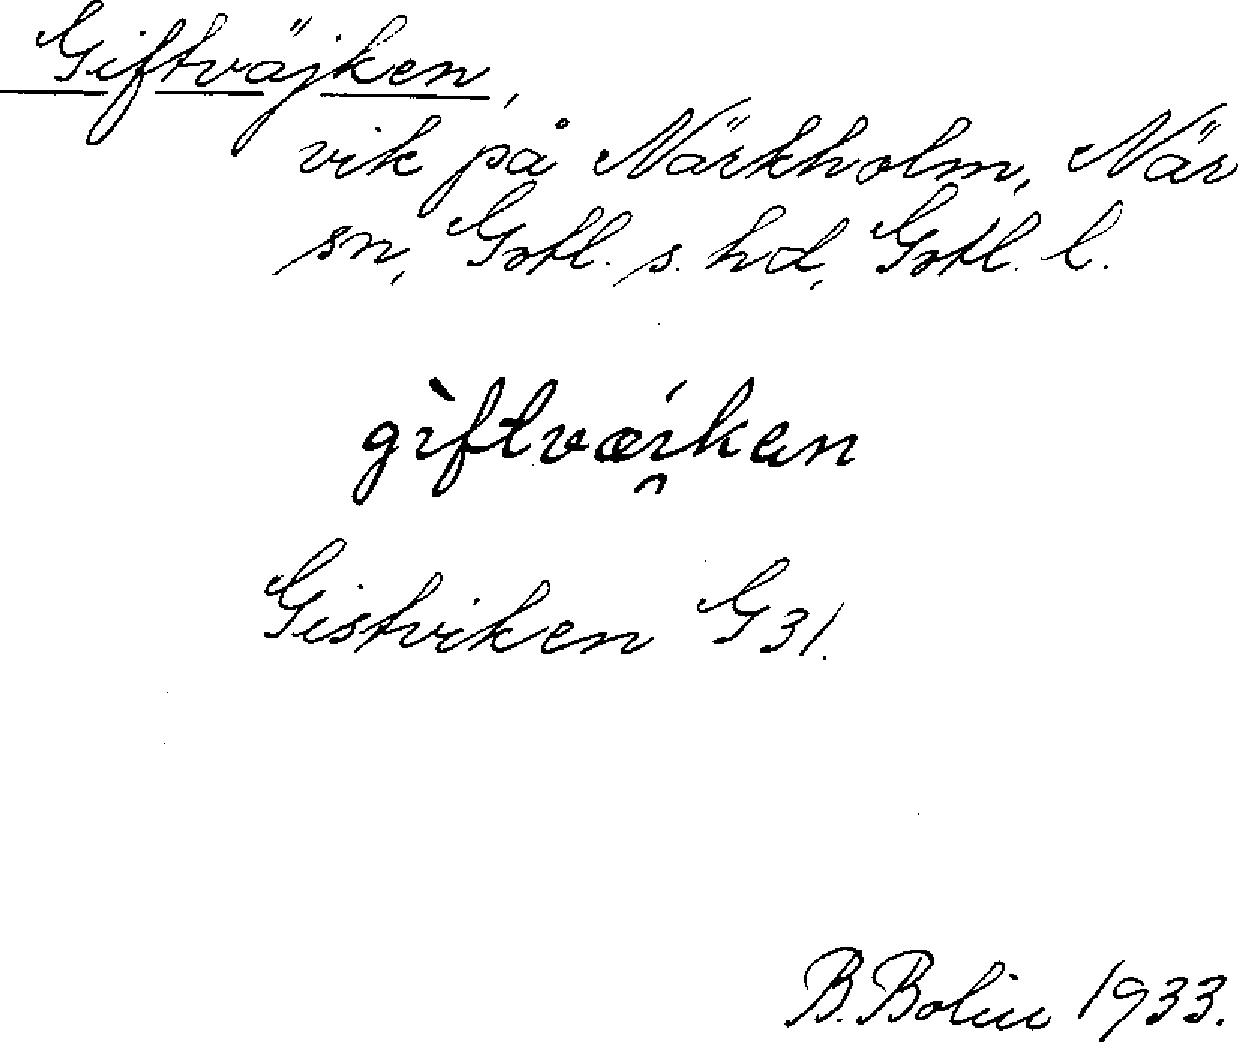 Giftväjken,
vik på Närkholm, När
sn, Gotl. s. hd, Gotl. l.
gìftvæi̯kən
Gistviken G31.
B. Bolin 1933.